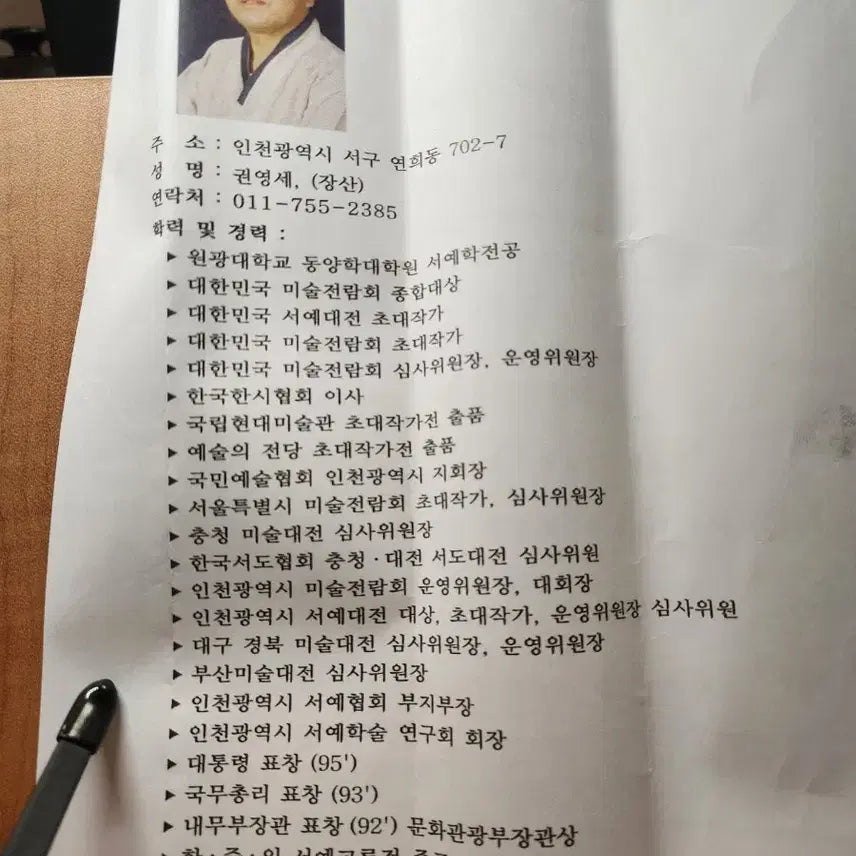 주 소 : 인천광역시 서구 연희동 702-7
성 명 : 권영세, (장산)
연락처 : 011-755-2385
학력 및 경력 :
▶ 원광대학교 동양학대학원 서예학전공
▶ 대한민국 미술전람회 종합대상
▶ 대한민국 서예대전 초대작가
▶ 대한민국 미술전람회 초대작가
▶ 대한민국 미술전람회 심사위원장, 운영위원장
▶ 한국한시협회 이사
▶ 국립현대미술관 초대작가전 출품
▶ 예술의 전당 초대작가전 출품
▶ 국민예술협회 인천광역시 지회장
▶ 서울특별시 미술전람회 초대작가, 심사위원장
▶ 충청 미술대전 심사위원장
▶ 한국서도협회 충청·대전 서도대전 심사위원
▶ 인천광역시 미술전람회 운영위원장, 대회장
▶ 인천광역시 서예대전 대상, 초대작가, 운영위원장 심사위원
▶ 대구 경북 미술대전 심사위원장, 운영위원장
▶ 부산미술대전 심사위원장
▶ 인천광역시 서예협회 부지부장
▶ 인천광역시 서예학술 연구회 회장
▶ 대통령 표창 (95')
▶ 국무총리 표창 (93')
▶ 내무부장관 표창 (92') 문화관광부장관상